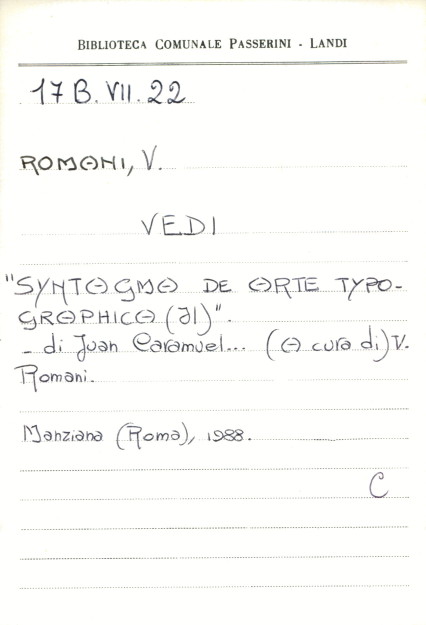 BIBLIOTECA COMUNALE PASSERINI - LANDI
17 B. VII. 22
ROMANI, V.
VEDI
"SYNTAGMA DE ARTE TYPO-
GRAPHICA (Il)".
- di Juan Caramuel... (A cura di) V.
Romani.
Manziana (Roma), 1988.
C